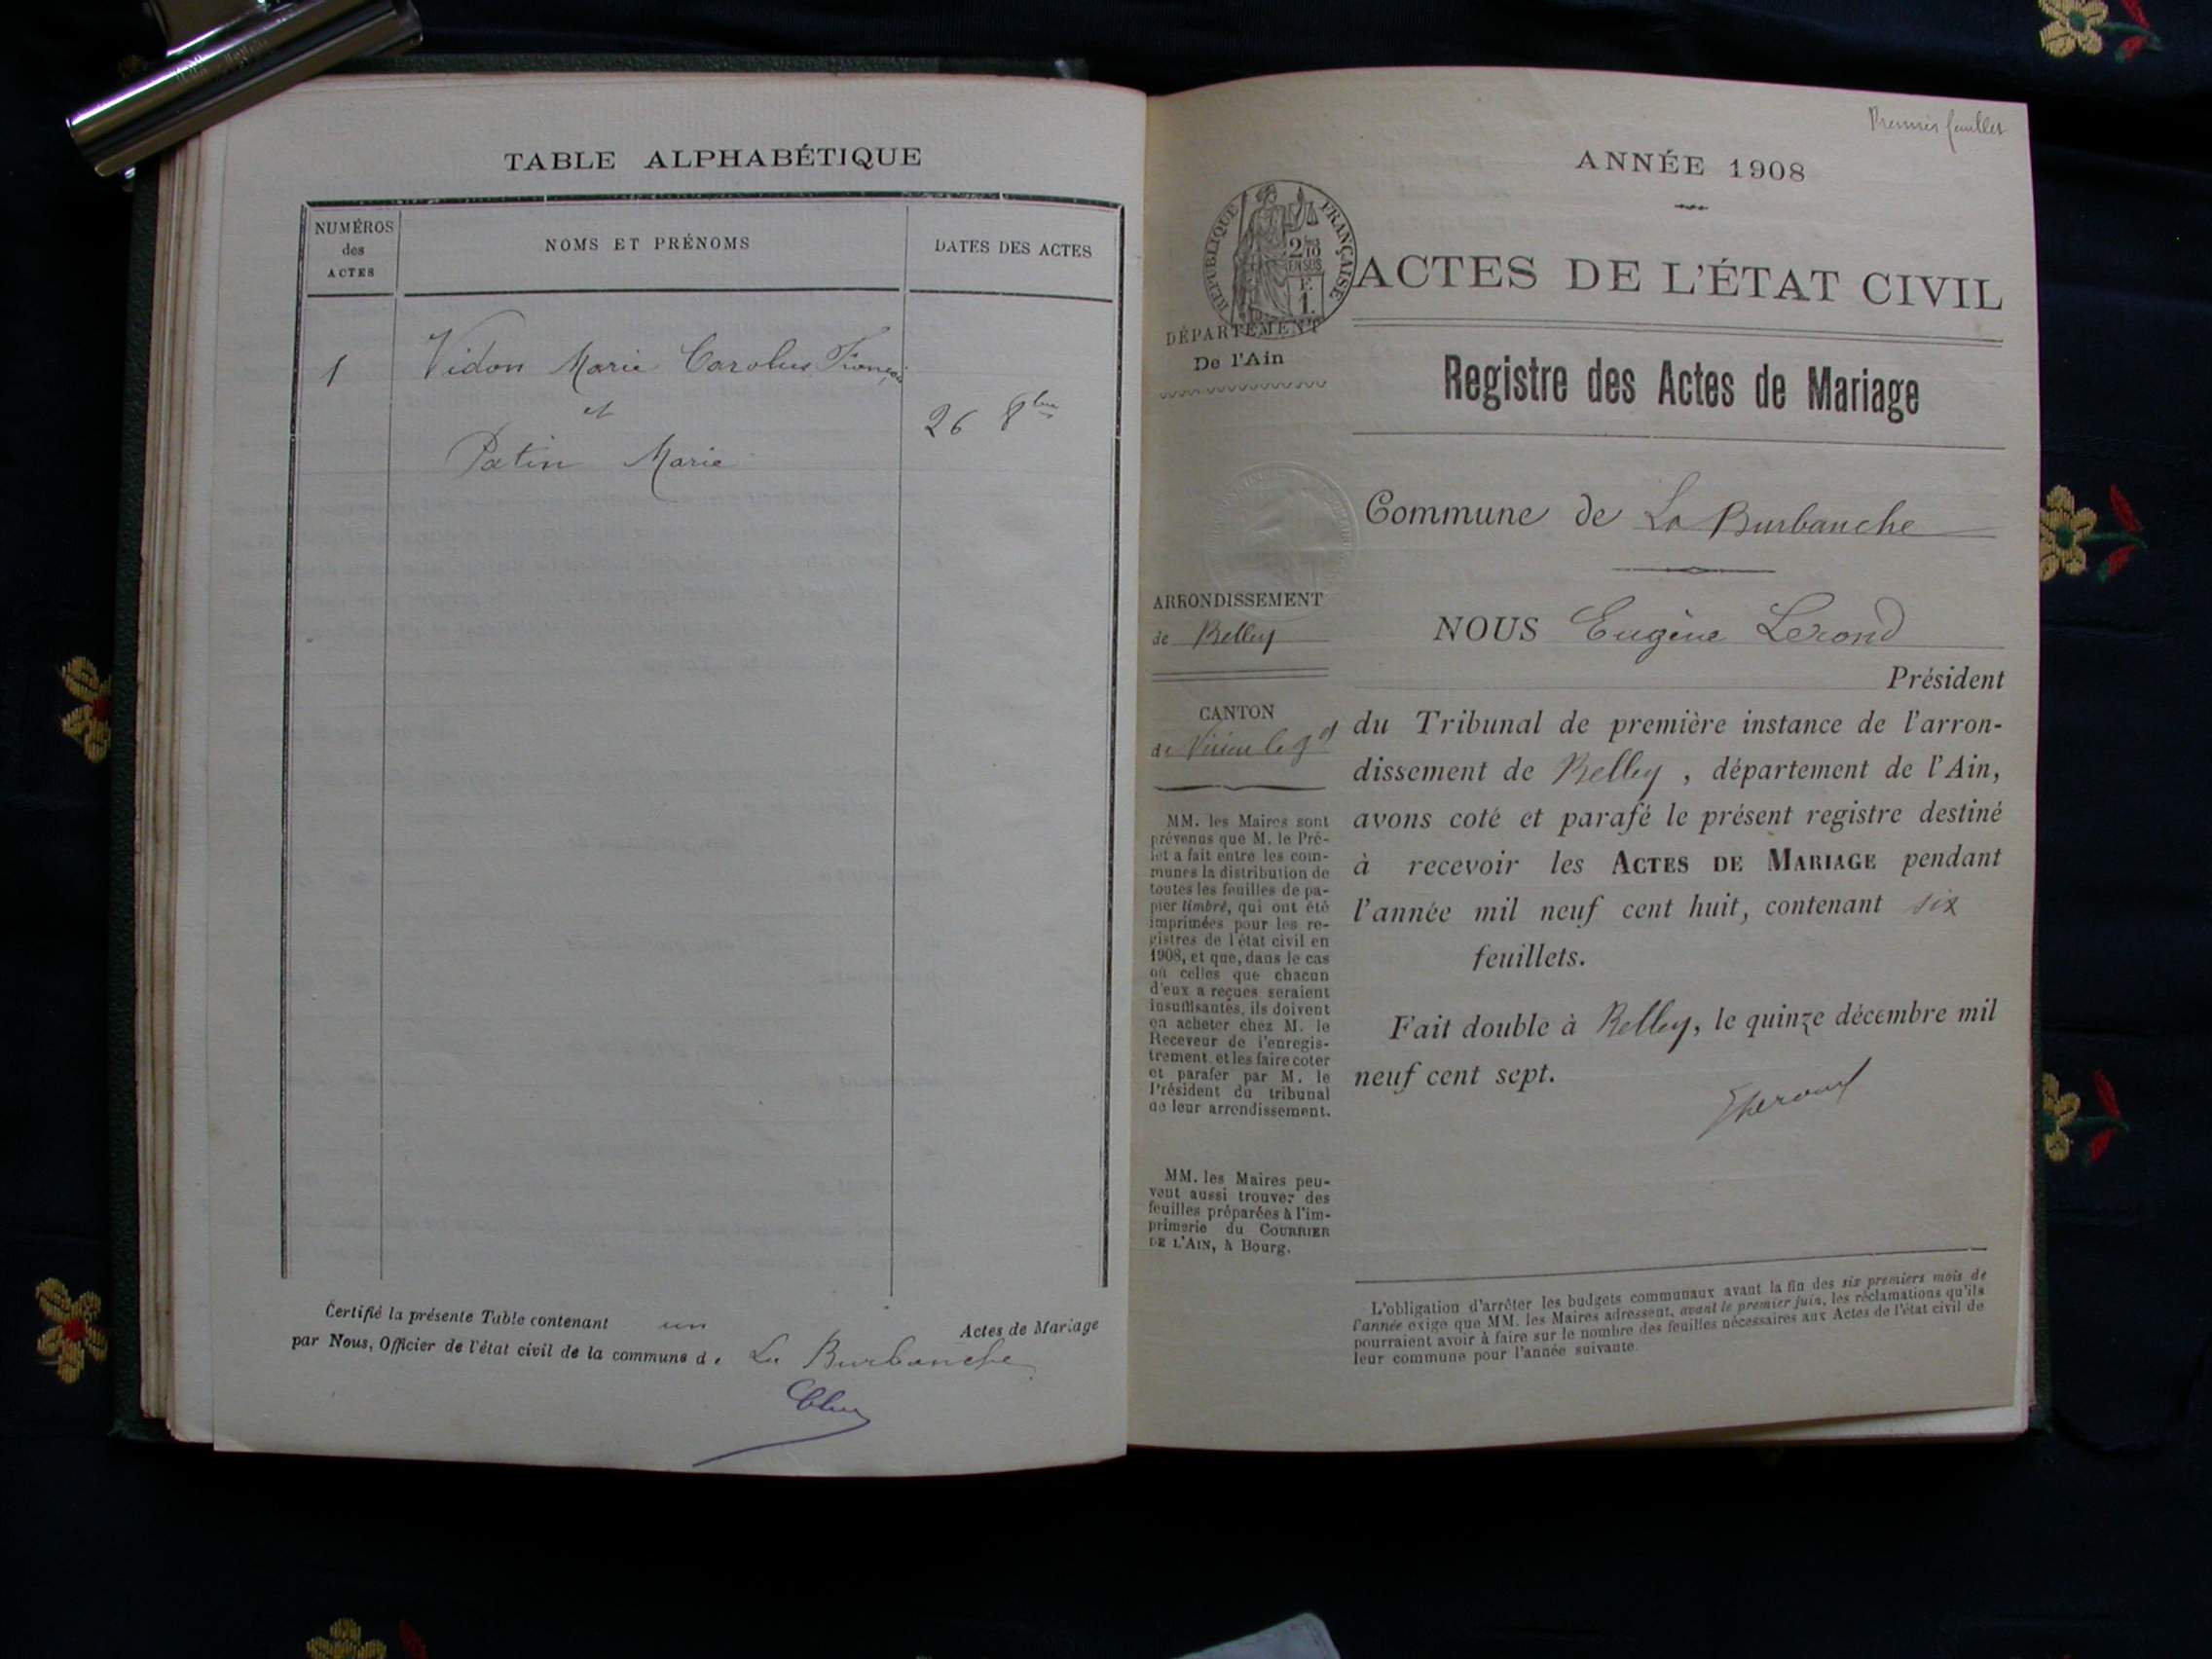 TABLE ALPHABÉTIQUE
NUMÉROS
des
ACTES
NOMS ET PRÉNOMS
DATES DES ACTES
1
Vidon Marie Carolus François
et
Patin Marie
26 8bre
Certifié la présente Table contenant un Actes de Mariage
par Nous, Officier de l'état civil de la commune de La Burbanche
Premier feuillet
ANNÉE 1908
RÉPUBLIQUE FRANÇAISE
2/10
EN SUS
F.
1.
ACTES DE L'ÉTAT CIVIL
DÉPARTEMENT
De l'Ain
Registre des Actes de Mariage
Commune de La Burbanche
ARRONDISSEMENT
de Belley
NOUS Eugène Lerond
Président
CANTON
de Virieu le gd
du Tribunal de première instance de l'arron-
dissement de Belley, département de l'Ain,
avons coté et parafé le présent registre destiné
à recevoir les ACTES DE MARIAGE pendant
l'année mil neuf cent huit, contenant six
feuillets.
Fait double à Belley, le quinze décembre mil
neuf cent sept.
MM. les Maires sont
prévenus que M. le Pré-
fet a fait entre les com-
munes la distribution de
toutes les feuilles de pa-
pier timbré, qui ont été
imprimées pour les re-
gistres de l'état civil en
1908, et que, dans le cas
où celles que chacun
d'eux a reçues seraient
insuffisantes, ils doivent
en acheter chez M. le
Receveur de l'enregis-
trement et les faire coter
et parafer par M. le
Président du tribunal
de leur arrondissement.
MM. les Maires peu-
vent aussi trouver des
feuilles préparées à l'im-
primerie du COURRIER
DE L'AIN, à Bourg.
L'obligation d'arrêter les budgets communaux avant la fin des six premiers mois de
l'année exige que MM. les Maires adressent, avant le premier juin, les réclamations qu'ils
pourraient avoir à faire sur le nombre des feuilles nécessaires aux Actes de l'état civil de
leur commune pour l'année suivante.